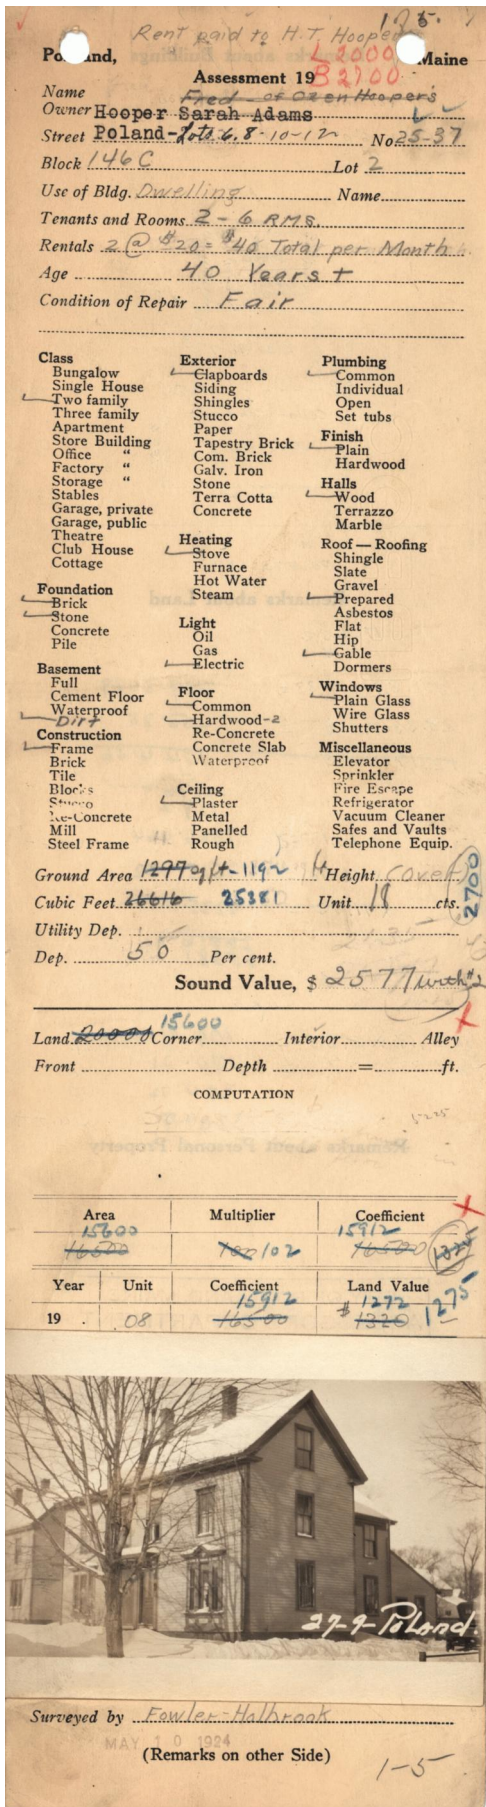 Rent paid to H.T. Hooper
Portland, L2000 Maine
Assessment 19 B2700
Name Fred - of Ozen Hooper's
Owner Hooper Sarah Adams
Street Poland-Lots 6.8-10-12 No 25-37
Block 146C Lot 2
Use of Bldg. Dwelling Name
Tenants and Rooms 2-6 RMS.
Rentals 2 @ $20 = $40 Total per Month
Age 40 Years +
Condition of Repair Fair
Class
Bungalow
Single House
Two family
Three family
Apartment
Store Building
Office "
Factory "
Storage "
Stables
Garage, private
Garage, public
Theatre
Club House
Cottage
Foundation
Brick
Stone
Concrete
Pile
Basement
Full
Cement Floor
Waterproof
Dirt
Construction
Frame
Brick
Tile
Blocks
Stucco
Re-Concrete
Mill
Steel Frame
Exterior
Clapboards
Siding
Shingles
Stucco
Paper
Tapestry Brick
Com. Brick
Galv. Iron
Stone
Terra Cotta
Concrete
Heating
Stove
Furnace
Hot Water
Steam
Light
Oil
Gas
Electric
Floor
Common
Hardwood-2
Re-Concrete
Concrete Slab
Waterproof
Ceiling
Plaster
Metal
Panelled
Rough
Plumbing
Common
Individual
Open
Set tubs
Finish
Plain
Hardwood
Halls
Wood
Terrazzo
Marble
Roof — Roofing
Shingle
Slate
Gravel
Prepared
Asbestos
Flat
Hip
Gable
Dormers
Windows
Plain Glass
Wire Glass
Shutters
Miscellaneous
Elevator
Sprinkler
Fire Escape
Refrigerator
Vacuum Cleaner
Safes and Vaults
Telephone Equip.
Ground Area 1297 1192 Height (Over)
Cubic Feet 26616 25381 Unit 18 cts.
2700
Utility Dep.
Dep. 50 Per cent.
Sound Value, $ 2577 with #2
15600
Land 20000 Corner Interior Alley
Front Depth = ft.
COMPUTATION
Area Multiplier Coefficient
15600 15912
16500 100 102 16500 1325
Year Unit Coefficient Land Value
15912 $ 1272 1275
19 . .08 16500 1320
27-9-Poland.
Surveyed by Fowler-Holbrook
MAY 10 1924
(Remarks on other Side)
1-5